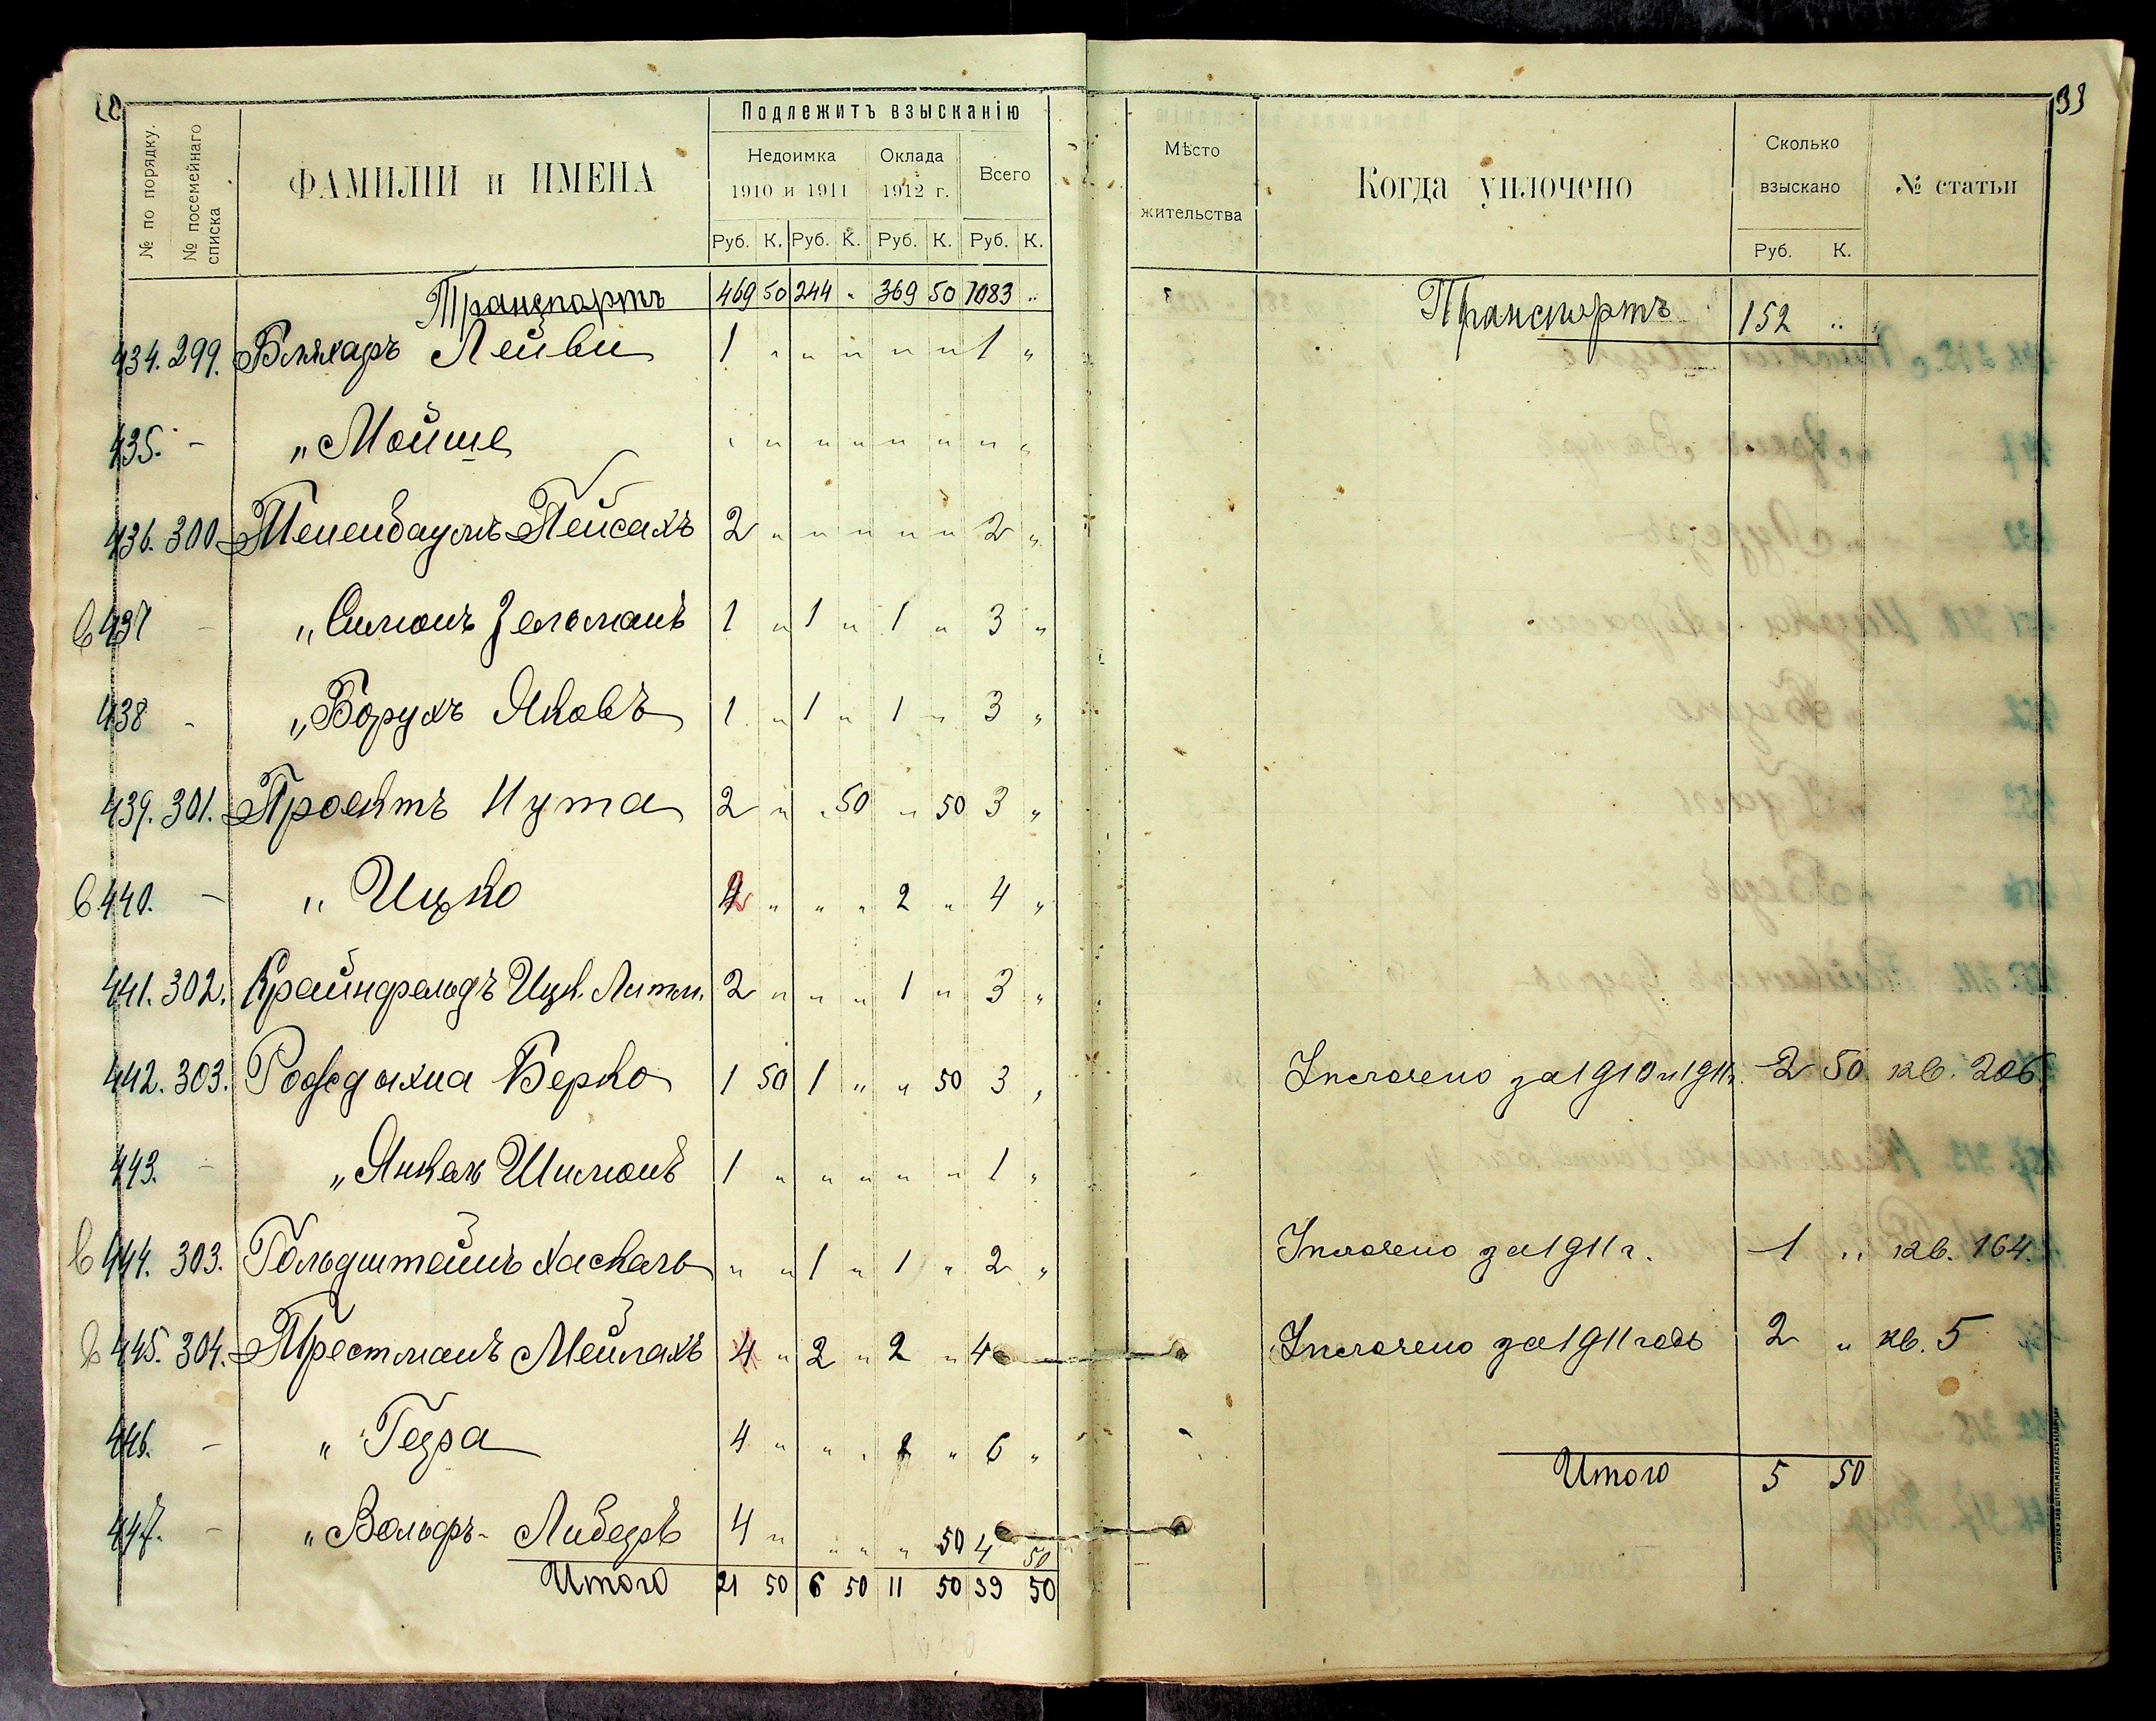 33
Подлежитъ взысканію
№ по порядку.
№ посемейнаго списка
ФАМИЛІИ и ИМЕНА
Недоимка 1910 и 1911
Оклада 1912 г.
Всего
Руб. К. Руб. К. Руб. К. Руб. К.
Мѣсто жительства
Когда уплочено
Сколько взыскано
Руб. К.
№ статьи
Транспортъ 469 50 244 " 369 50 1083 "
Транспортъ 152 "
434. 299. Бляхаръ Лейви 1 " " " " " 1 "
435. - " Мойше " " " " " " " "
436. 300 Тененбаумъ Пейсахъ 2 " " " " " 2 "
в 437 - " Симонъ Зельманъ 1 " 1 " 1 " 3 "
438 - " Борухъ Яковъ 1 " 1 " 1 " 3 "
439. 301. Проектъ Нута 2 " " 50 " 50 3 "
в 440. - " Ицко 2 " " " 2 " 4 "
441. 302. Крайнфельдъ Ицк. 2 " " " 1 " 3 "
442. 303. Берко 1 50 1 " " 50 3 "
Уплочено за 1910 и 1911 г. 2 50 кв. 206.
443. - " Янкель Шимонъ 1 " " " " " 1 "
в 444. 303. Гольдштейнъ Хаскель " " 1 " 1 " 2 "
Уплочено за 1911 г. 1 " кв. 164.
в 445. 304. Престманъ Мейлахъ 4 " 2 " 2 " 4
Уплочено за 1911 годъ 2 " кв. 5
446. - " Гецра 4 " " " 2 " 6 "
447. - " Вольфъ-Либеръ 4 " " " " 50 4 50
Итого 21 50 6 50 11 50 39 50
Итого 5 50